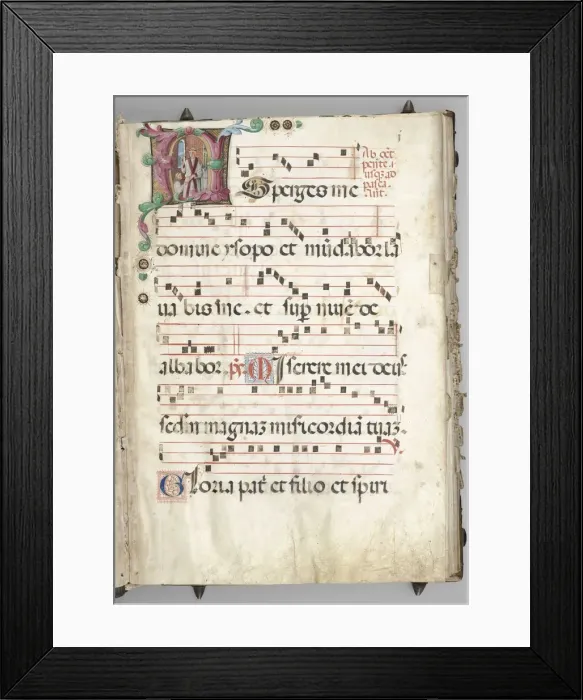 i
Ab oct̄
pente.
usq; ad
pasca.
Ant.
Asperges me
domine ysopo et mūdabor la
va bis me. et sup̄ nivē de
albabor. ps̄. Miserere mei deus
scd̄m magnaʒ misericordiā tuaʒ.
Gloria pat̄ et filio et spiri